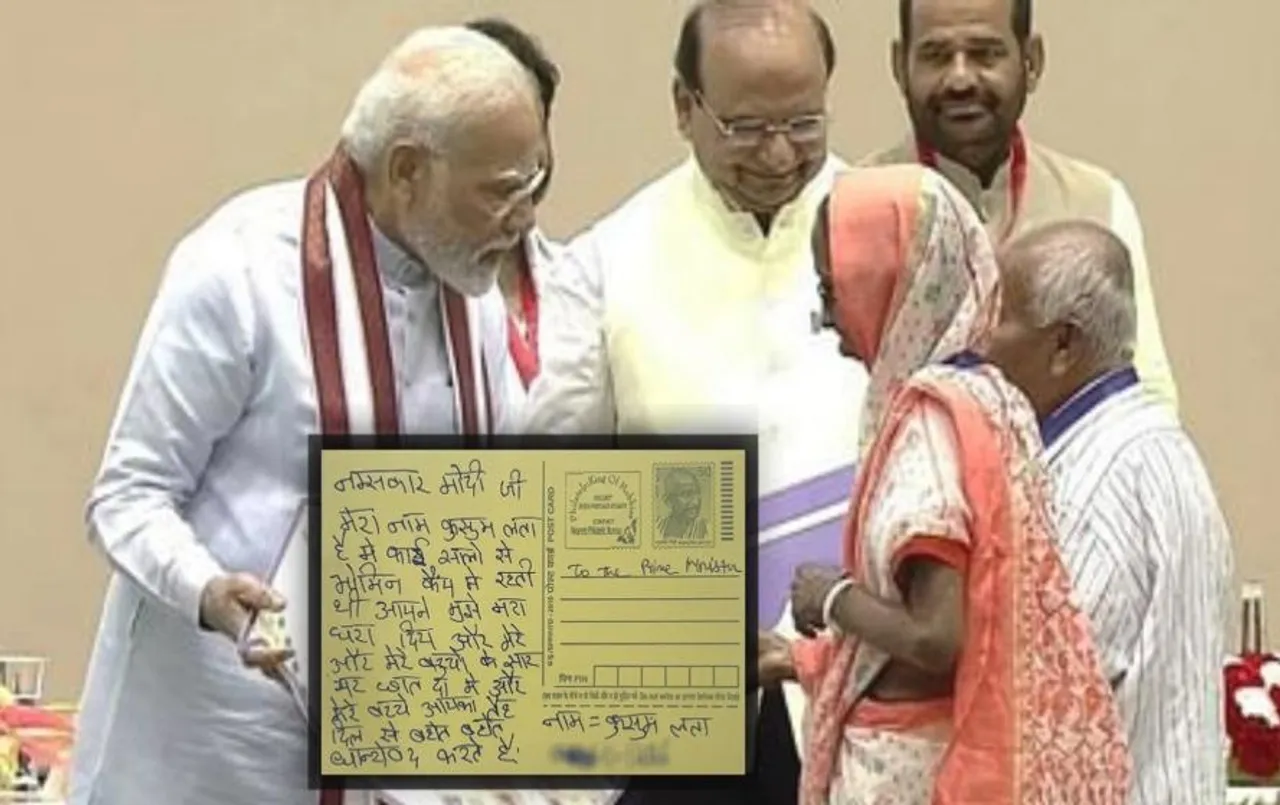 नमस्कार मोदी जी
मेरा नाम कुसुम लता
है मे काई सालो से
मोमिन कैंप मे रहती
थी आपने मुझे मेरा
घरा दिया और मेरे
और मेरे बच्चो के
छात दी मे और
मेरे बच्चे आपका तेह
दिल से बहोत बहोत
करते है.
पोस्ट कार्ड POST CARD
50
To The Prime Minister
पिन PIN
नाम = कुसुम लता